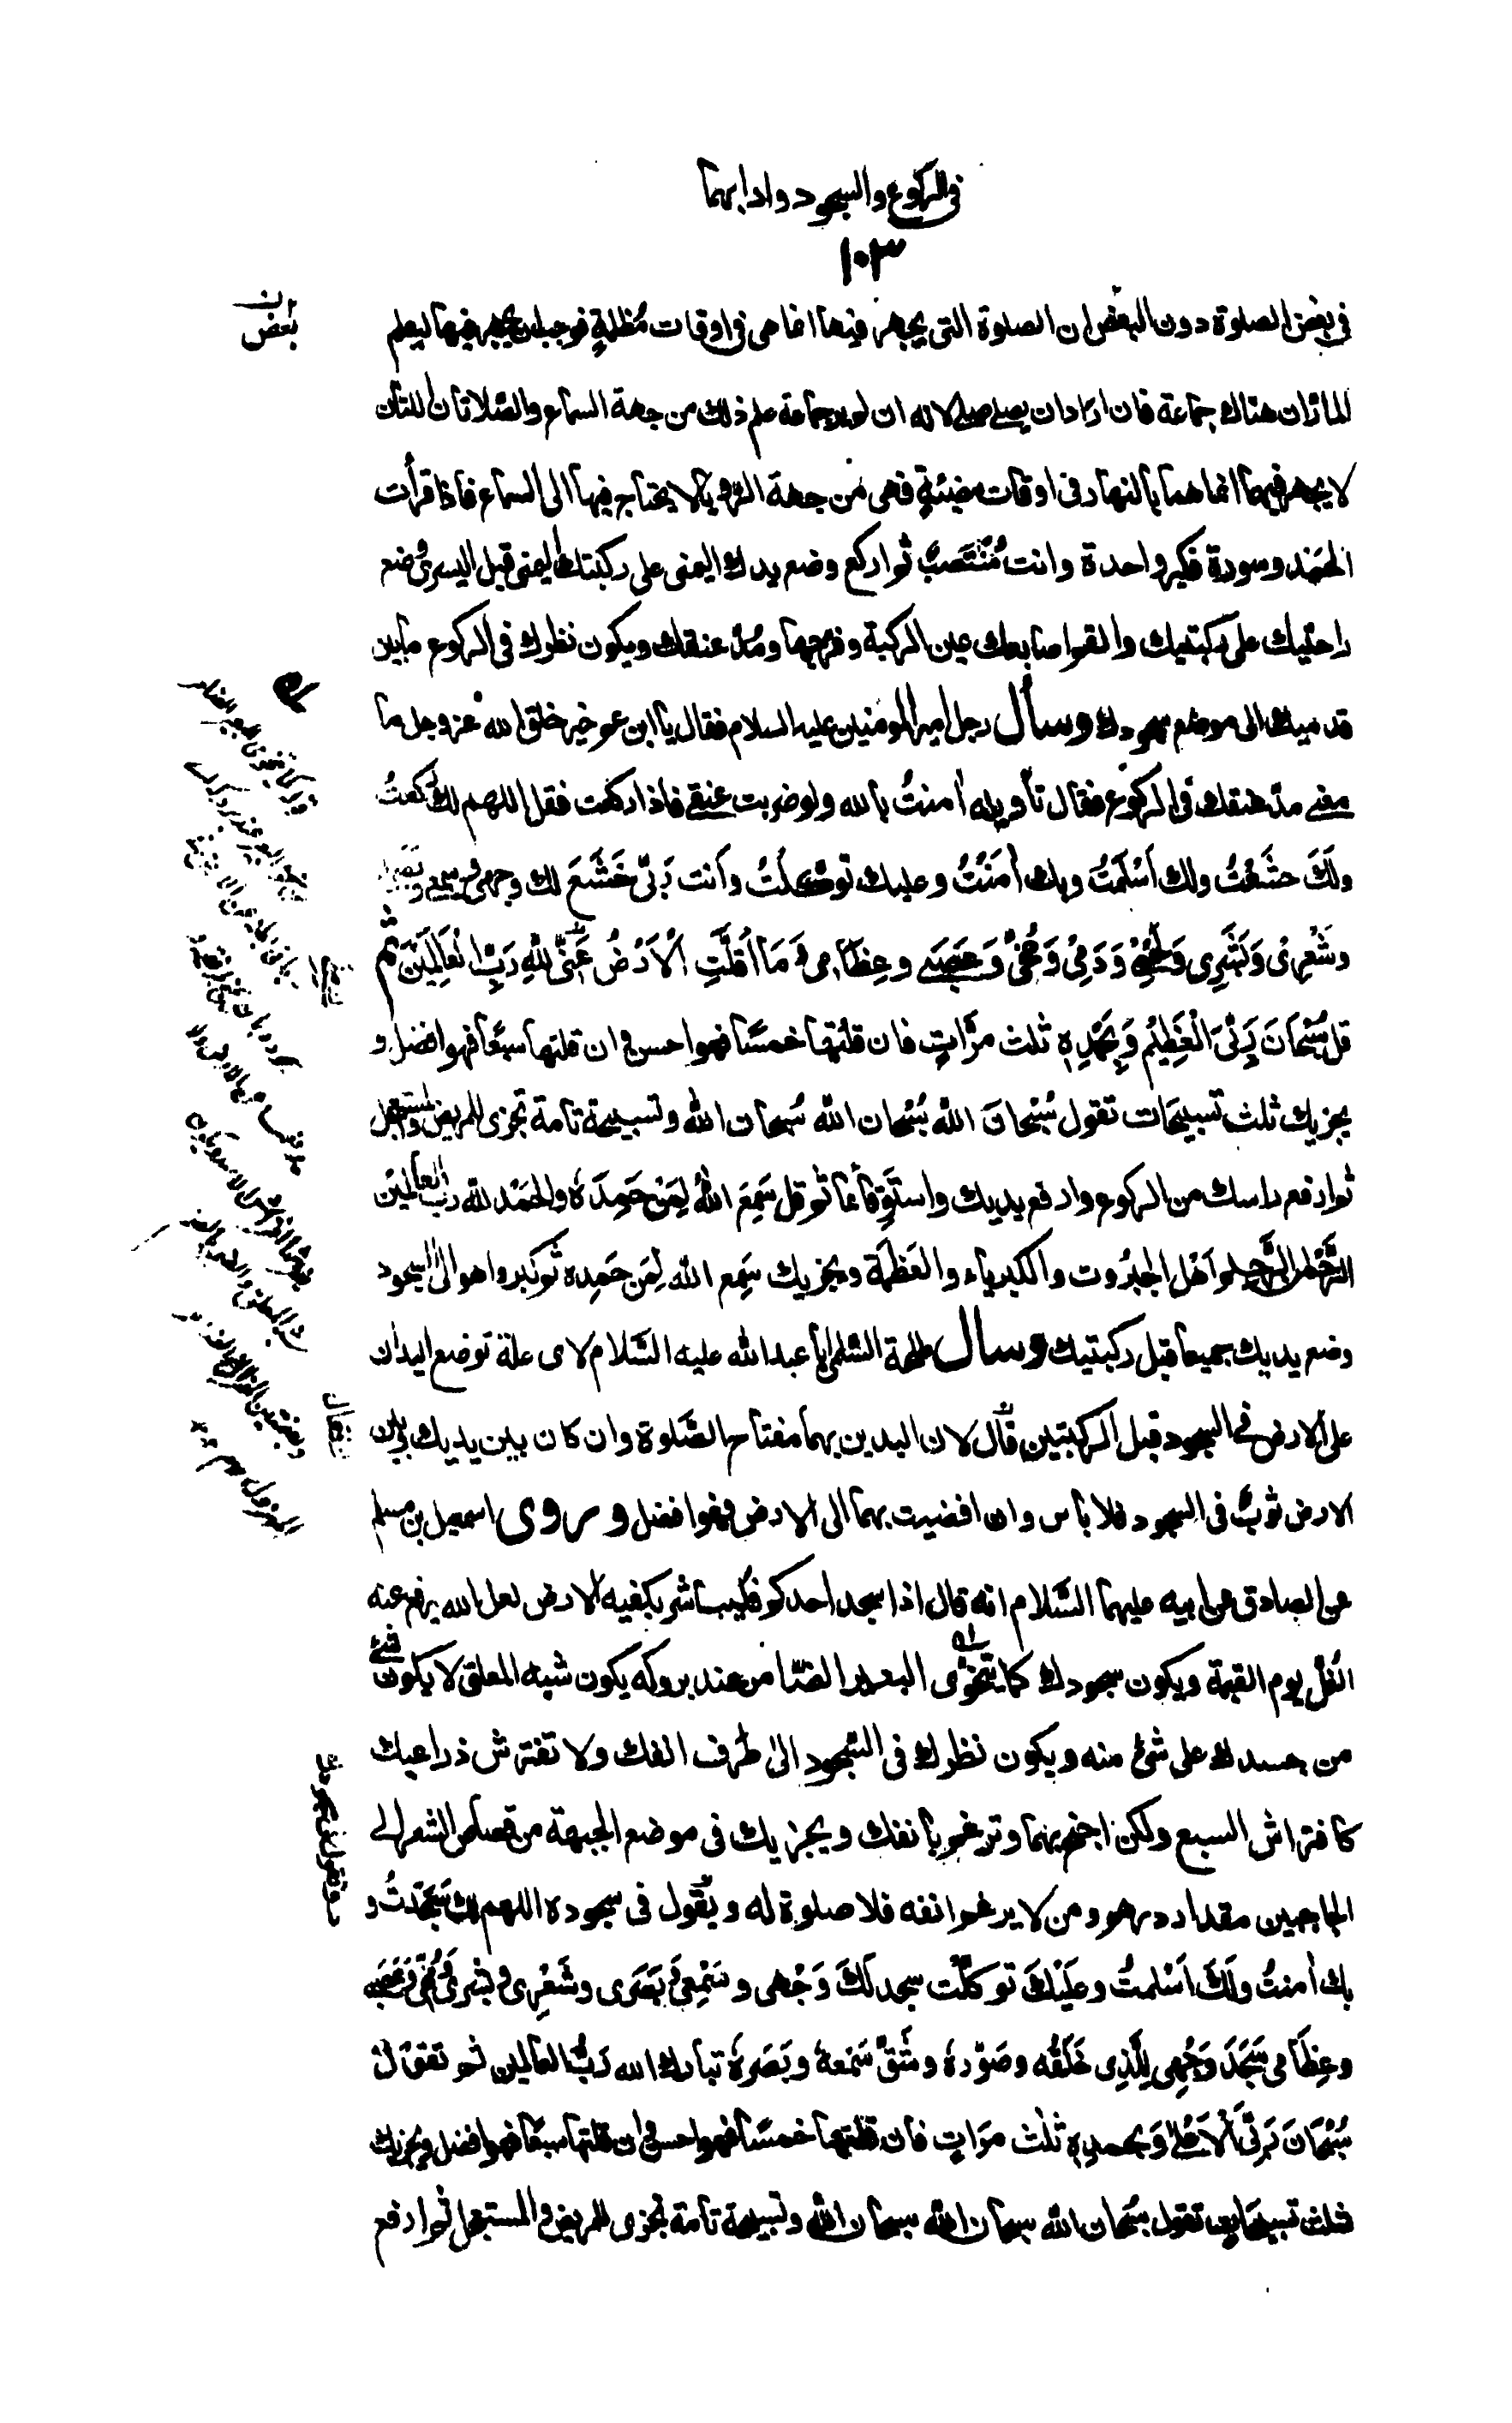 في الركوع والسجود وادابهما
١٠٣
في بعض الصلوة دون البعض ان الصلوة التي يجهر فيها انما هي في اوقات مُظلمةٍ فوجب ان يجهر فيها ليعلم
بعض
المارّ ان هناك جماعة فان اراد ان يصلي صلى لانه ان لم ير جماعة علم ذلك من جهة السماع والصّلاتان اللتان
لا يجهر فيهما انما هما بالنهار في اوقات مضيئةٍ فهى من جهة الرؤية لا يحتاج فيها الى السماع فاذا قرأت
الحَمْد وسورة فكبر واحدة وانت مُنْتَصِبٌ ثم اركع وضع يدك اليمنى على ركبتك اليمنى قبل اليسرى وضع
راحتيك على ركبتيك والقم اصابعك عين الركبة وفرجها ومُدّ عنقك ويكون نظرك في الركوع مابين
قدميك الى موضع سجودك وسأل رجل امير المومنين عليه السلام فقال يا ابن عم خير خلق الله عز وجل ما
معنى مدّ عنقك في الركوع فقال تأويله اٰمنتُ بالله ولو ضربت عنقي فاذا ركعت فقل اللهم لك ركعتُ
ولَكَ خشَعْتُ ولك اَسْلَمتُ وبك اٰمَنْتُ وعليك توكّلتُ واَنت رَبّى خَشَعَ لك وجهى وسمعى وبصرى
وشَعْرِى وَبَشَرِى وَلَحْمِى وَدَمِى وَمُخّى وَعَصَبِى وعِظَامِى وَمَا اَقَلَّتِ الْاَرْضُ مِنّى لِلّٰهِ رَبِّ الْعَالَمِيْنَ ثم
قل سُبْحَانَ رَبّىَ الْعَظِيْمِ وَبِحَمْدِهٖ ثلث مرَّاتٍ فان قلتها خمسًا فهو احسن وان قلتها سبعًا فهو افضل و
يجزيك ثلث تسبيحات تقول سُبْحَانَ اللّٰه سُبْحان اللّٰه سُبحان اللّٰه وتسبيحة تامة تجزى للمريض والمستعجل
ثم ارفع راسك من الركوع وارفع يديك واستَوِ قائما ثم قل سَمِعَ اللّٰهُ لِمَنْ حَمِدَهٗ والحَمْد للّٰه رب العالمين
الرَّحْمٰن الرَّحيم اَهْل الجبرُوت والكبرياء والعَظَمَة ويجزيك سَمِع اللّٰه لِمَن حَمِده ثم كبر واهو الى السجود
وضع يديك جميعا قبل ركبتيك وسال طلحة السّلمى ابا عبد اللّٰه عليه السّلام لاى علة توضع اليدان
على الارض في السجود قبل الركبتين قال لان اليدين بهما مفتاح الصّلوة وان كان بين يديك وبين
الارض ثوبٌ في السجود فلا بأس وان افضيت بهما الى الارض فهو افضل وروى اسمعيل بن مسلم
عن الصادق عن ابيه عليهما السّلام انه قال اذا سجد احدكم فليباشر بكفيه الارض لعل الله يرفع عنه
الغُلّ يوم القيمة ويكون سجودك كما يتخوّى البعير الضّامر عند بروكه يكون شبه المعلق لا يكون شئ
من جسدك على شئ منه ويكون نظرك في السّجود الى طرف انفك ولا تفترش ذراعيك
كافتراش السبع ولكن اجنح بهما وترغم بانفك ويجزيك في موضع الجبهة من قصاص الشعر الى
الحاجبين مقدار درهم ومن لا يرغم انفه فلا صلوة له ويقول في سجوده اللهم لك سَجَدتُ و
بك اٰمنتُ ولَكَ اَسْلمتُ وعلَيْكَ توكلّت سجد لَكَ وَجْهى وسَمْعِى وَبَصَرى وشَعْرِى وبشرى ومُخّى وعَصَبى
وعِظَامى سَجَدَ وَجْهِى لِلَّذِى خَلَقَه وصَوّرهٗ وشَقّ سَمْعهٗ وبَصَرهٗ تبارك الله رَبّ العالمين ثم تقول
سُبْحَانَ رَبّىَ الْاَعْلٰى وَبحمدِهٖ ثلٰث مرّاتٍ فان قلتها خمسًا فهو احسن وان قلتها سبعًا فهو افضل ويجزيك
ثلٰث تسبيحاتٍ تقول سُبحان اللّٰه سبحان اللّٰه سبحان اللّٰه وتسبيحة تامة تجزى للمريض والمستعجل ثم ارفع